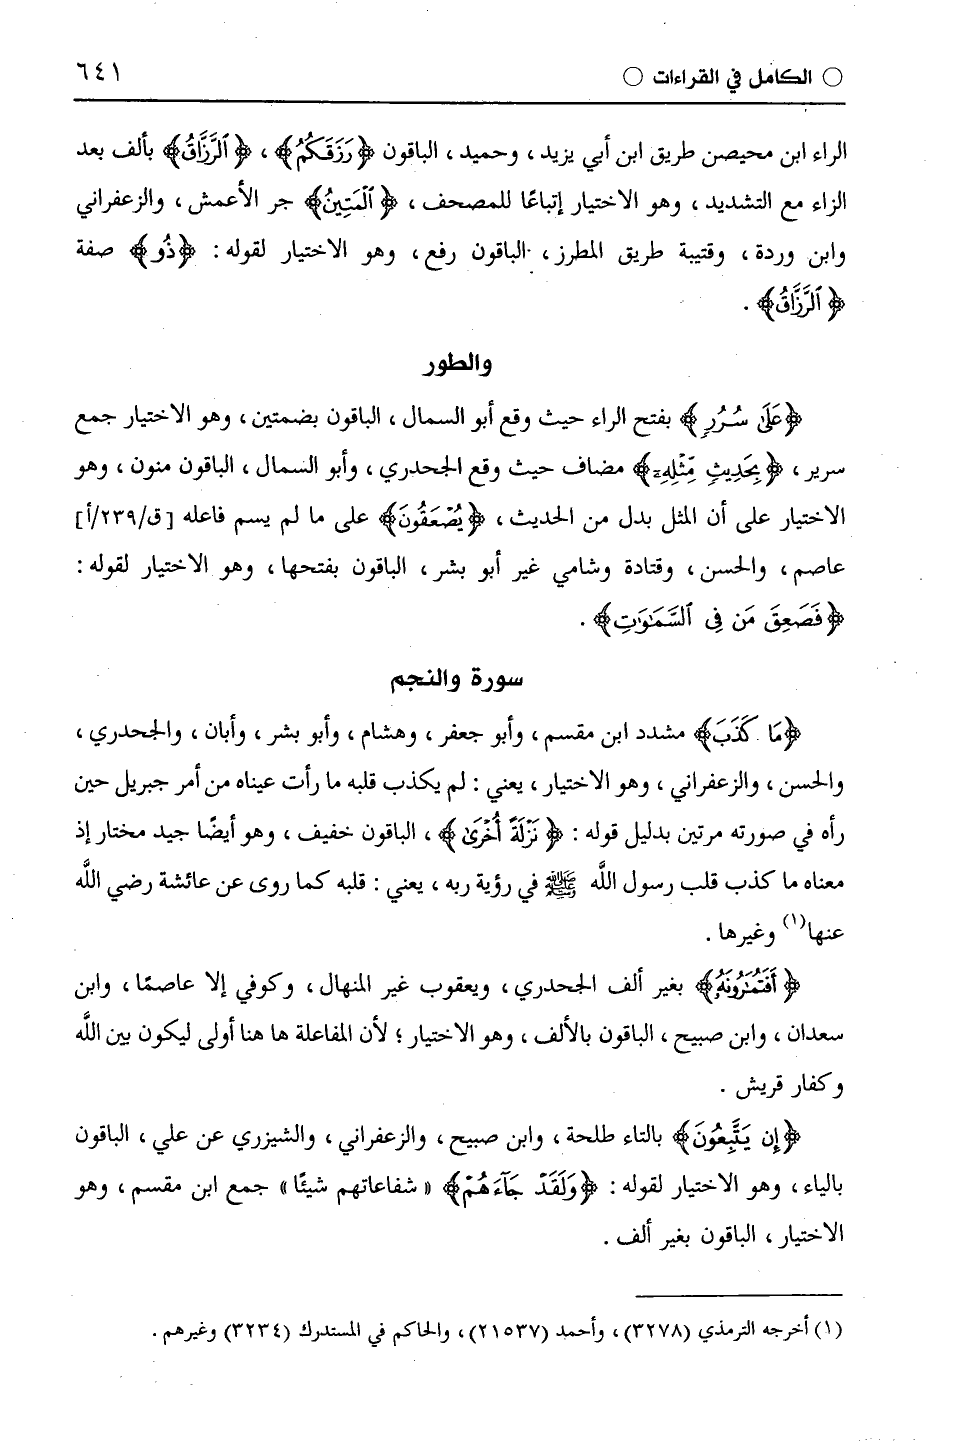 ○ الكامل في القراءات ○ ٦٤١
الراء ابن محيصن طريق ابن أبي يزيد، وحميد، الباقون ﴿رَزَقَكُمُ﴾، ﴿ٱلرَّزَّاقُ﴾ بألف بعد
الزاء مع التشديد، وهو الاختيار إتباعًا للمصحف، ﴿ٱلْمَتِينُ﴾ جر الأعمش، والزعفراني
وابن وردة، وقتيبة طريق المطرز، الباقون رفع، وهو الاختيار لقوله: ﴿ذُو﴾ صفة
﴿ٱلرَّزَّاقُ﴾.
والطور
﴿عَلَىٰ سُرُرٍ﴾ بفتح الراء حيث وقع أبو السمال، الباقون بضمتين، وهو الاختيار جمع
سرير، ﴿بِحَدِيثٍ مِّثْلِهِۦٓ﴾ مضاف حيث وقع الجحدري، وأبو السمال، الباقون منون، وهو
الاختيار على أن المثل بدل من الحديث، ﴿يُصْعَقُونَ﴾ على ما لم يسم فاعله [ق/٢٣٩/أ]
عاصم، والحسن، وقتادة وشامي غير أبو بشر، الباقون بفتحها، وهو الاختيار لقوله:
﴿فَصَعِقَ مَن فِى ٱلسَّمَٰوَٰتِ﴾.
سورة والنجم
﴿مَا كَذَبَ﴾ مشدد ابن مقسم، وأبو جعفر، وهشام، وأبو بشر، وأبان، والجحدري،
والحسن، والزعفراني، وهو الاختيار، يعني: لم يكذب قلبه ما رأت عيناه من أمر جبريل حين
رأه في صورته مرتين بدليل قوله: ﴿نَزْلَةً أُخْرَىٰ﴾، الباقون خفيف، وهو أيضًا جيد مختار إذ
معناه ما كذب قلب رسول اللَّه ﷺ في رؤية ربه، يعني: قلبه كما روى عن عائشة رضي اللَّه
عنها(١) وغيرها.
﴿أَفَتُمَٰرُونَهُۥ﴾ بغير ألف الجحدري، ويعقوب غير المنهال، وكوفي إلا عاصمًا، وابن
سعدان، وابن صبيح، الباقون بالألف، وهو الاختيار؛ لأن المفاعلة ها هنا أولى ليكون بين اللَّه
وكفار قريش.
﴿إِن يَتَّبِعُونَ﴾ بالتاء طلحة، وابن صبيح، والزعفراني، والشيزري عن علي، الباقون
بالياء، وهو الاختيار لقوله: ﴿وَلَقَدْ جَآءَهُم﴾ «شفاعاتهم شيئًا» جمع ابن مقسم، وهو
الاختيار، الباقون بغير ألف.
(١) أخرجه الترمذي (٣٢٧٨)، وأحمد (٢١٥٣٧)، والحاكم في المستدرك (٣٢٣٤) وغيرهم.